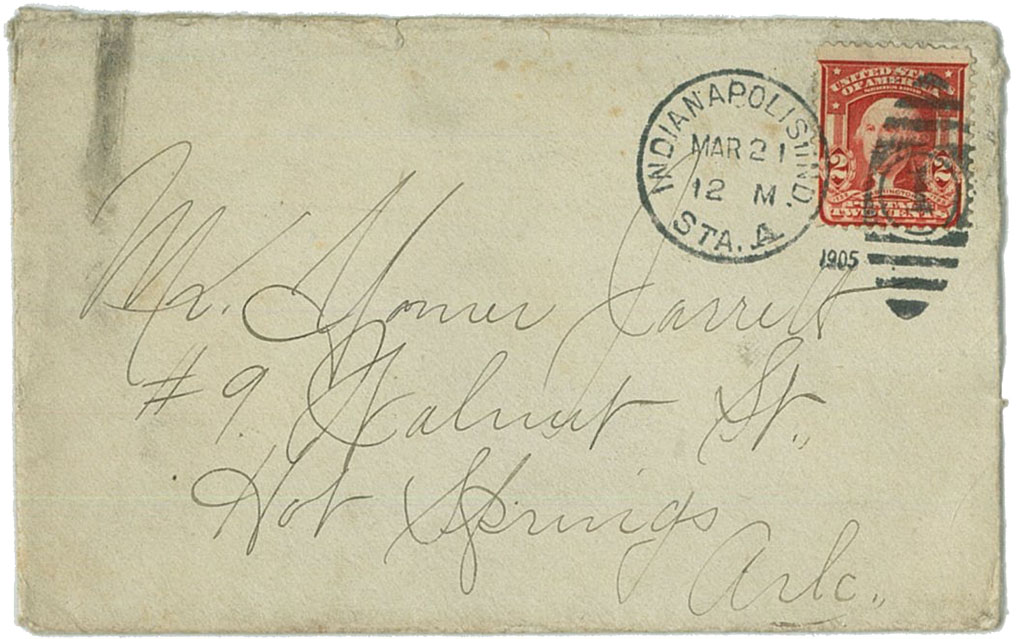 UNITED STATES
OF AMERICA
SERIES 1902
2 2
TWO CENTS
INDIANAPOLIS, IND.
MAR 21
12 M.
STA. A
1905
Mr. Homer Jarrett
#9 Walnut St.,
Hot Springs
Ark.